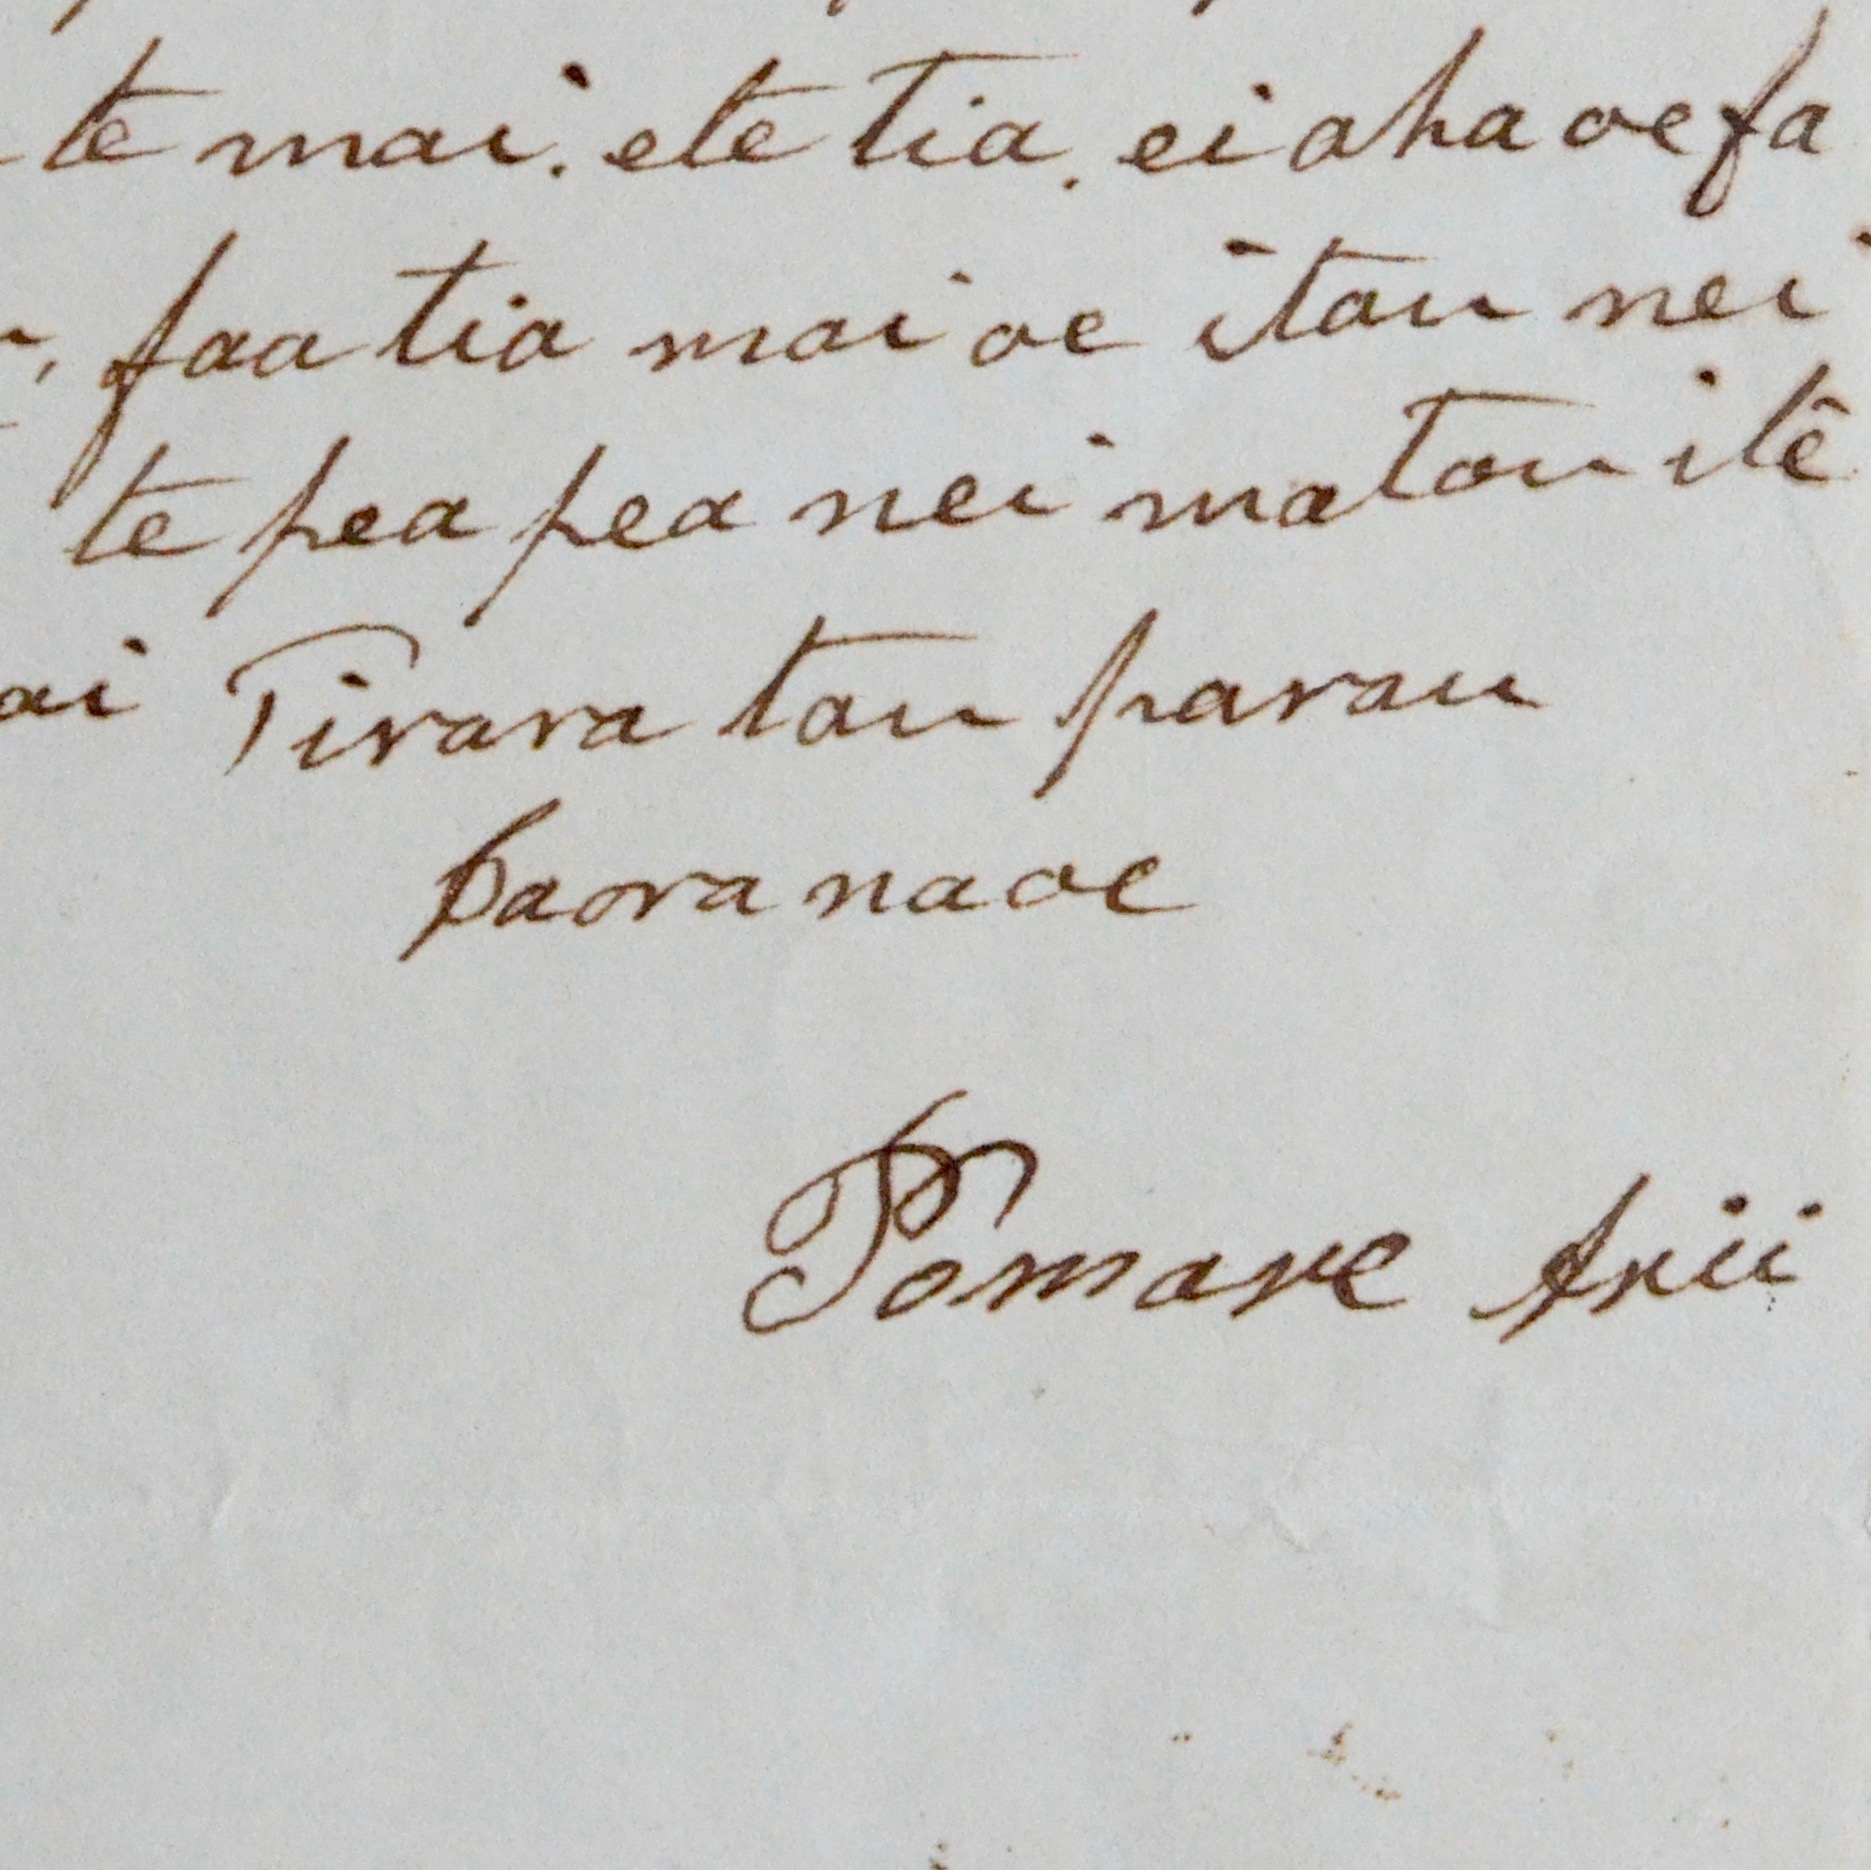 te mai. ete tia. ei aha oe fa
faa tia mai oe itau nei
te pea pea nei matou itê
ai Tirara tau parau
Iaora na oe
Pomare Arii